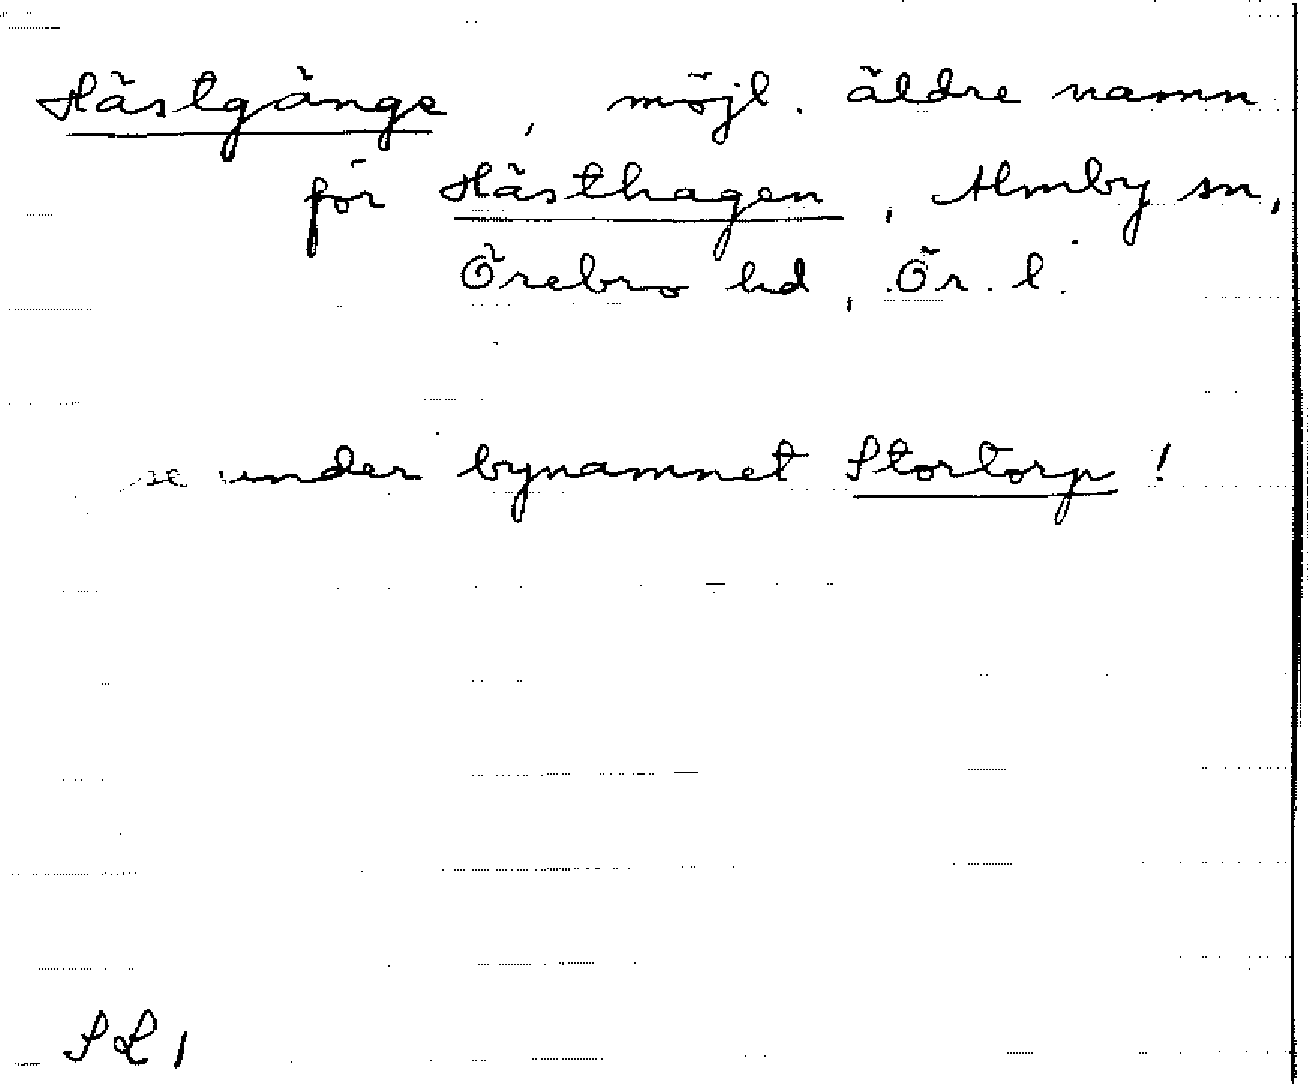 Hästgånge, möjl. äldre namn
för Hästhagen, Almby sn,
Örebro hd, Ör. l.
se under bynamnet Stortorp!